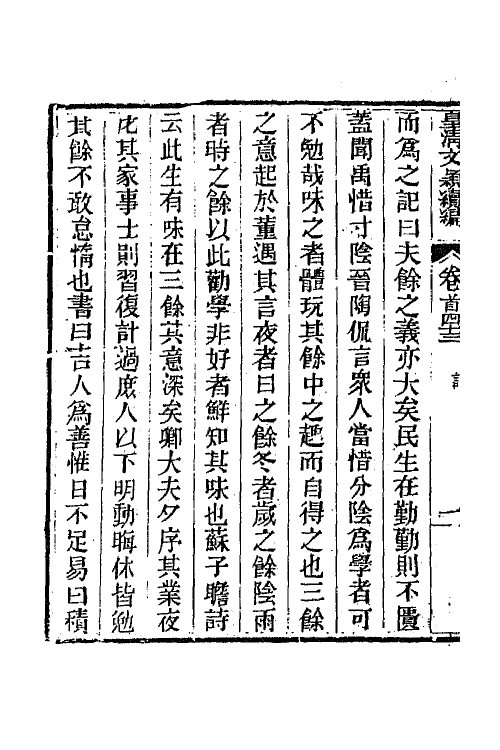 皇清文穎續編 卷首四十三 記
而爲之記曰夫餘之義亦大矣民生在勤勤則不匱
蓋聞禹惜寸陰晉陶侃言衆人當惜分陰爲學者可
不勉哉味之者體玩其餘中之趣而自得之也三餘
之意起於董遇其言夜者日之餘冬者歲之餘陰雨
者時之餘以此勸學非好者鮮知其味也蘇子瞻詩
云此生有味在三餘其意深矣卿大夫夕序其業夜
庀其家事士則習復計過庶人以下明動晦休皆勉
其餘不敢怠惰也書曰吉人爲善惟日不足易曰積